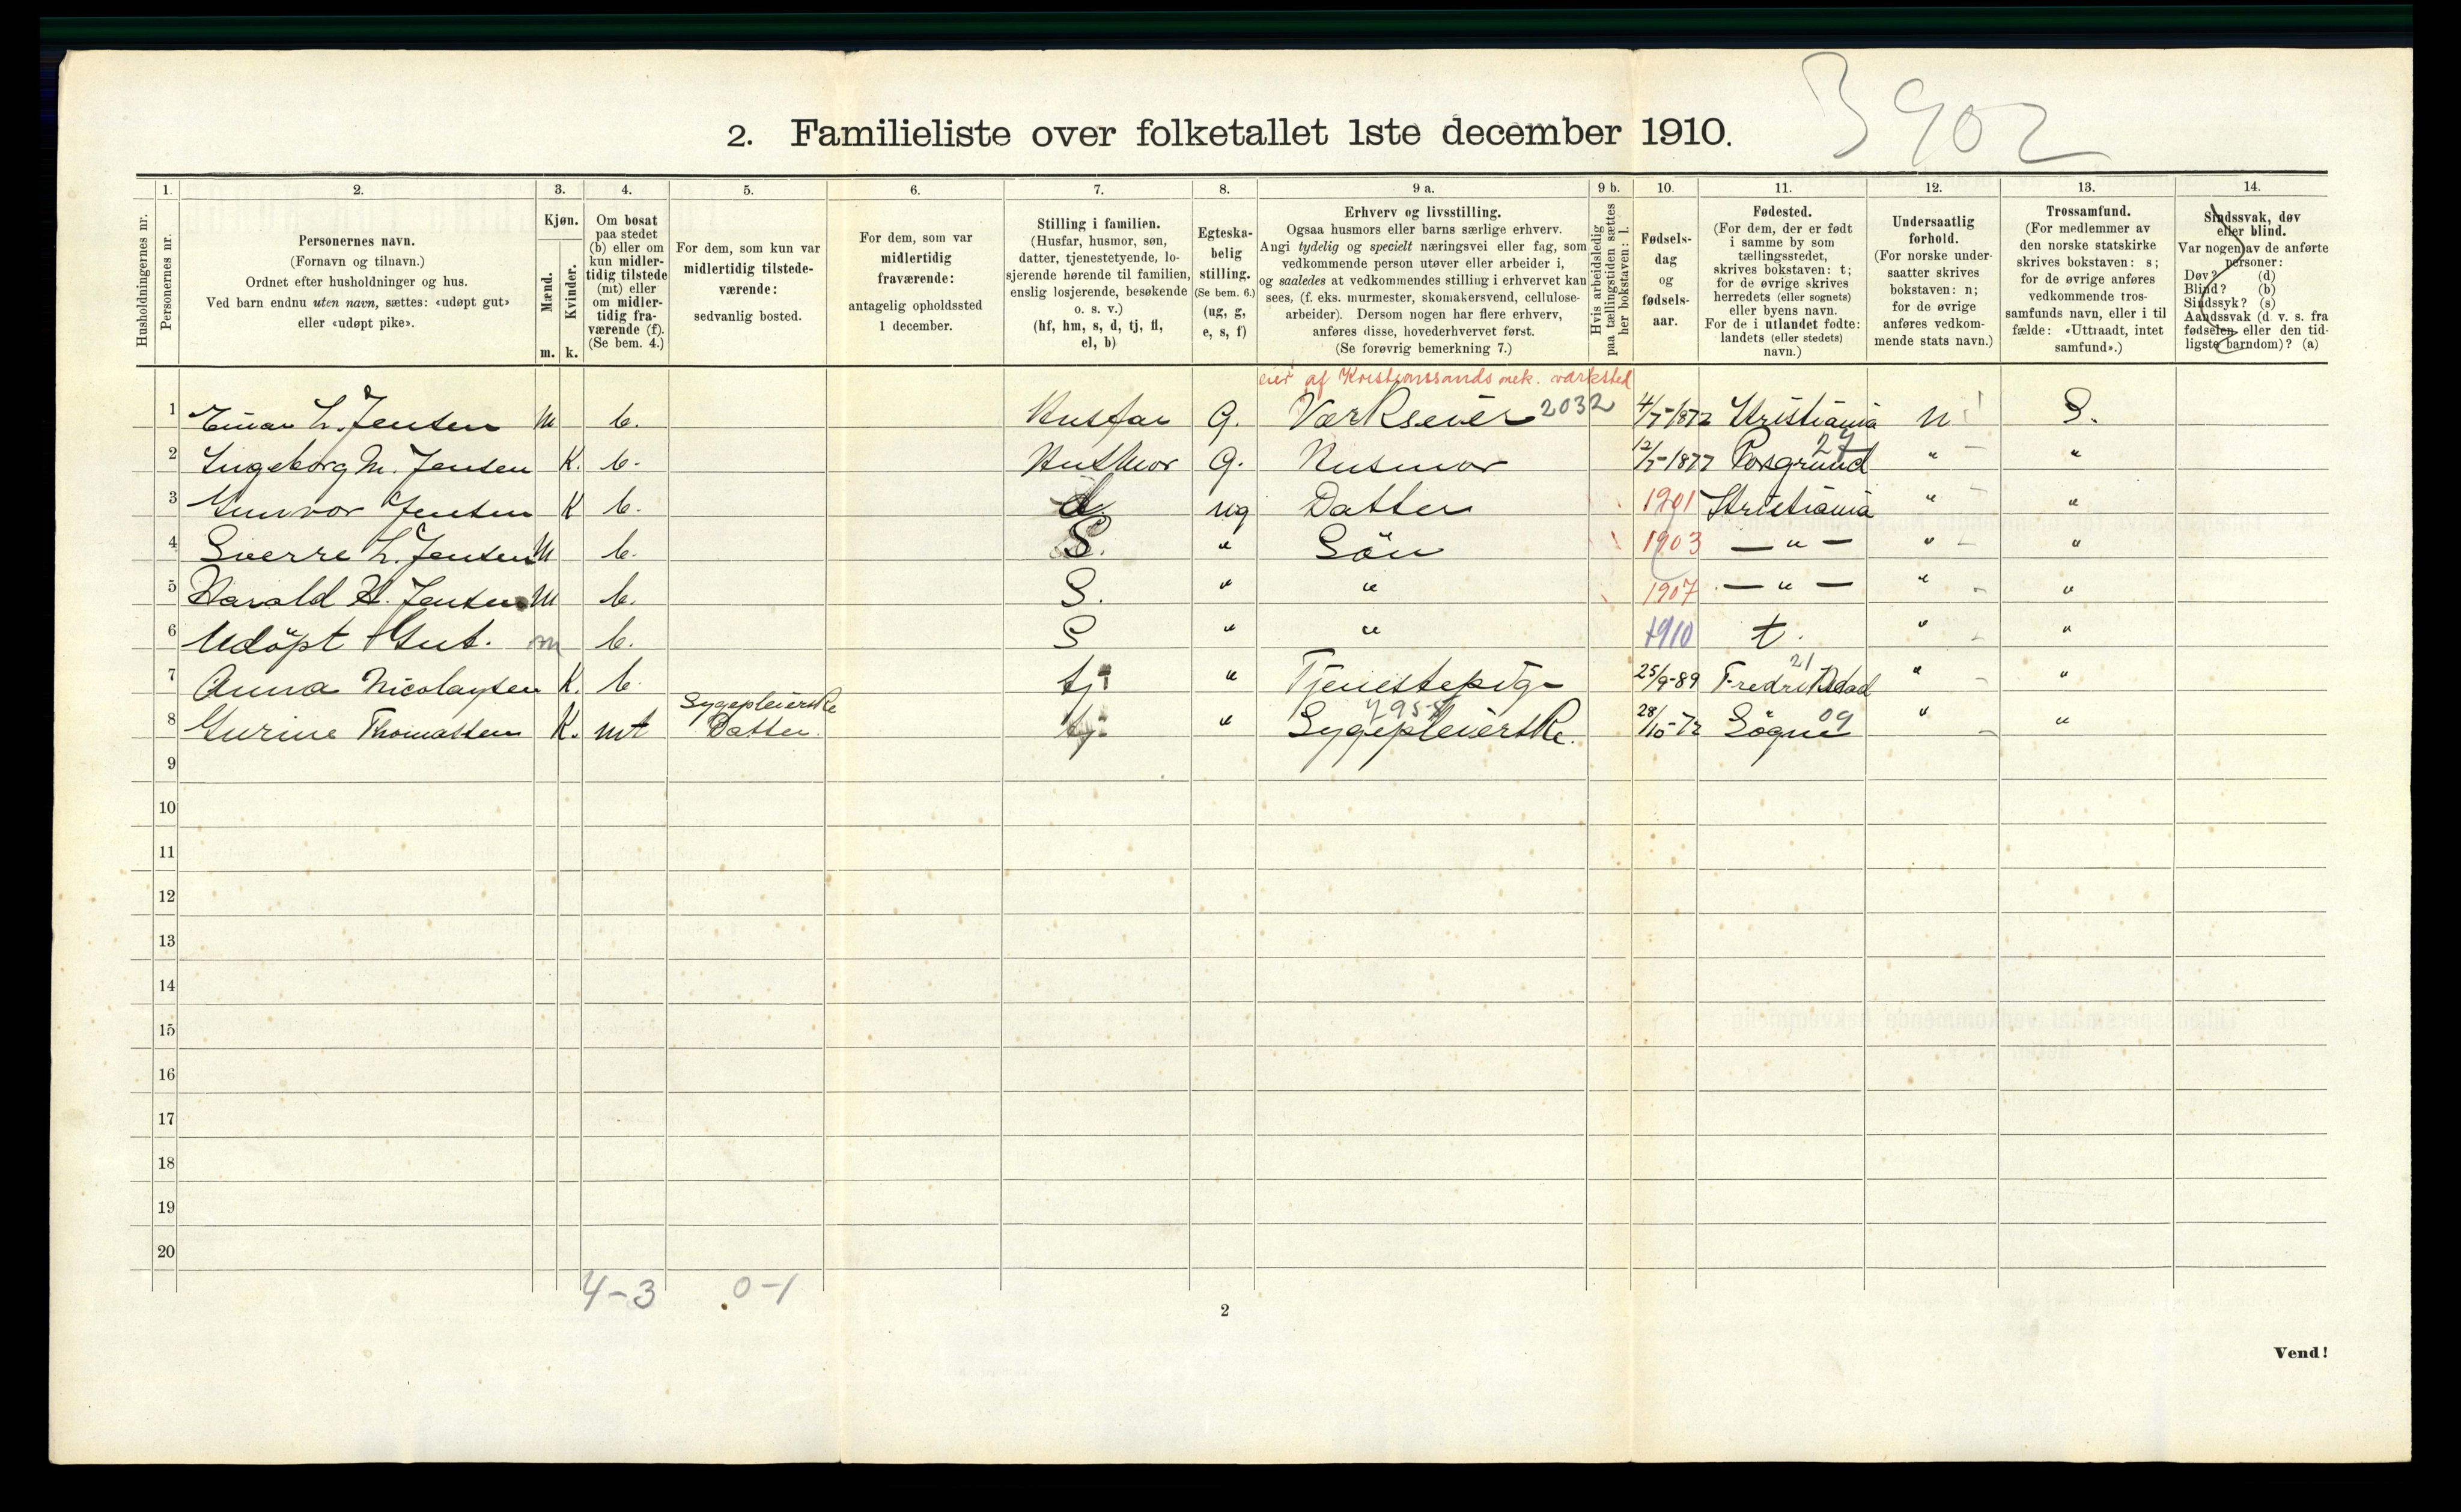 3902
2. Familieliste over folketallet 1ste december 1910.
1. 2. 3. 4. 5. 6. 7. 8. 9 a. 9 b. 10. 11. 12. 13. 14.
Husholdningernes nr.
Personernes nr.
Personernes navn.
(Fornavn og tilnavn.)
Ordnet efter husholdninger og hus.
Ved barn endnu uten navn, sættes: «udøpt gut»
eller «udøpt pike».
Kjøn.
Mænd.
Kvinder.
m. k.
Om bosat
paa stedet
(b) eller om
kun midler-
tidig tilstede
(mt) eller
om midler-
tidig fra-
værende (f).
(Se bem. 4.)
For dem, som kun var
midlertidig tilstede-
værende:
sedvanlig bosted.
For dem, som var
midlertidig
fraværende:
antagelig opholdssted
1 december.
Stilling i familien.
(Husfar, husmor, søn,
datter, tjenestetyende, lo-
sjerende hørende til familien,
enslig losjerende, besøkende
o. s. v.)
(hf, hm, s, d, tj, fl,
el, b)
Egteska-
belig
stilling.
(Se bem. 6.)
(ug, g,
e, s, f)
Erhverv og livsstilling.
Ogsaa husmors eller barns særlige erhverv.
Angi tydelig og specielt næringsvei eller fag, som
vedkommende person utøver eller arbeider i,
og saaledes at vedkommendes stilling i erhvervet kan
sees, (f. eks. murmester, skomakersvend, cellulose-
arbeider). Dersom nogen har flere erhverv,
anføres disse, hovederhvervet først.
(Se forøvrig bemerkning 7.)
Hvis arbeidsledig
paa tællingstiden sættes
her bokstaven: l.
Fødsels-
dag
og
fødsels-
aar.
Fødested.
(For dem, der er født
i samme by som
tællingsstedet,
skrives bokstaven: t;
for de øvrige skrives
herredets (eller sognets)
eller byens navn.
For de i utlandet fødte:
landets (eller stedets)
navn.)
Undersaatlig
forhold.
(For norske under-
saatter skrives
bokstaven: n;
for de øvrige
anføres vedkom-
mende stats navn.)
Trossamfund.
(For medlemmer av
den norske statskirke
skrives bokstaven: s;
for de øvrige anføres
vedkommende tros-
samfunds navn, eller i til
fælde: «Uttraadt, intet
samfund».)
Sindssvak, døv
eller blind.
Var nogen av de anførte
personer:
Døv? (d)
Blind? (b)
Sindssyk? (s)
Aandssvak (d. v. s. fra
fødselen eller den tid-
ligste barndom)? (a)
eier af Kristianssands mek. værksted
1 Einar L. Jensen M b. Husfar G. Værkseier 2032 4/5-1872 Kristiania n S.
2 Ingeborg M. Jensen K. b. Husmor G. Husmor 12/5-1877 Porsgrund 27 " "
3 Gunvor Jensen K b. d. ug Datter 1901 Kristiania " "
4 Sverre L. Jensen M b. S. " Sön 1903 — " — " "
5 Harald H. Jensen M b. S. " " 1907 — " — " "
6 Udöpt Gut. m b. S " " 1910 t. " "
7 Anna Nicolaysen K. b. tj: " Tjenestepige 25/9-89 Fredrikstad 21 " "
8 Gurine Thomassen K. mt Sygepleierske Datter. tj: " Sygepleierske. 28/10-72 Sögne 09 " "
9
10
11
12
13
14
15
16
17
18
19
20
4-3 0-1
2
Vend!